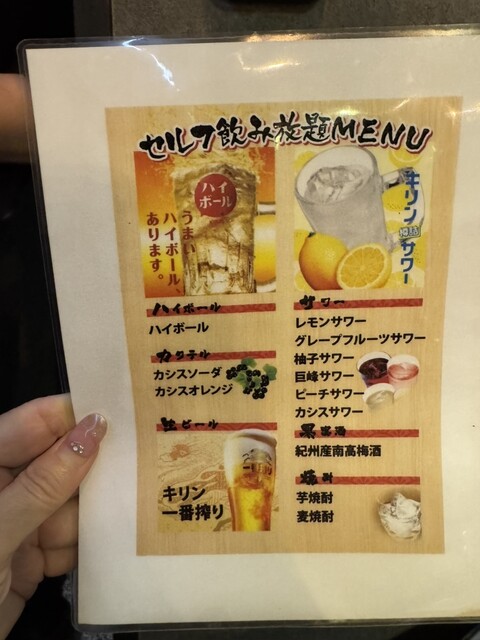 セルフ飲み放題MENU
ハイ
ボール
うまい
ハイボール、
あります。
キリン
樽詰
サワー
ハイボール
ハイボール
カクテル
カシスソーダ
カシスオレンジ
生ビール
キリン
一番搾り
サワー
レモンサワー
グレープフルーツサワー
柚子サワー
巨峰サワー
ピーチサワー
カシスサワー
果実酒
紀州産南高梅酒
焼酎
芋焼酎
麦焼酎